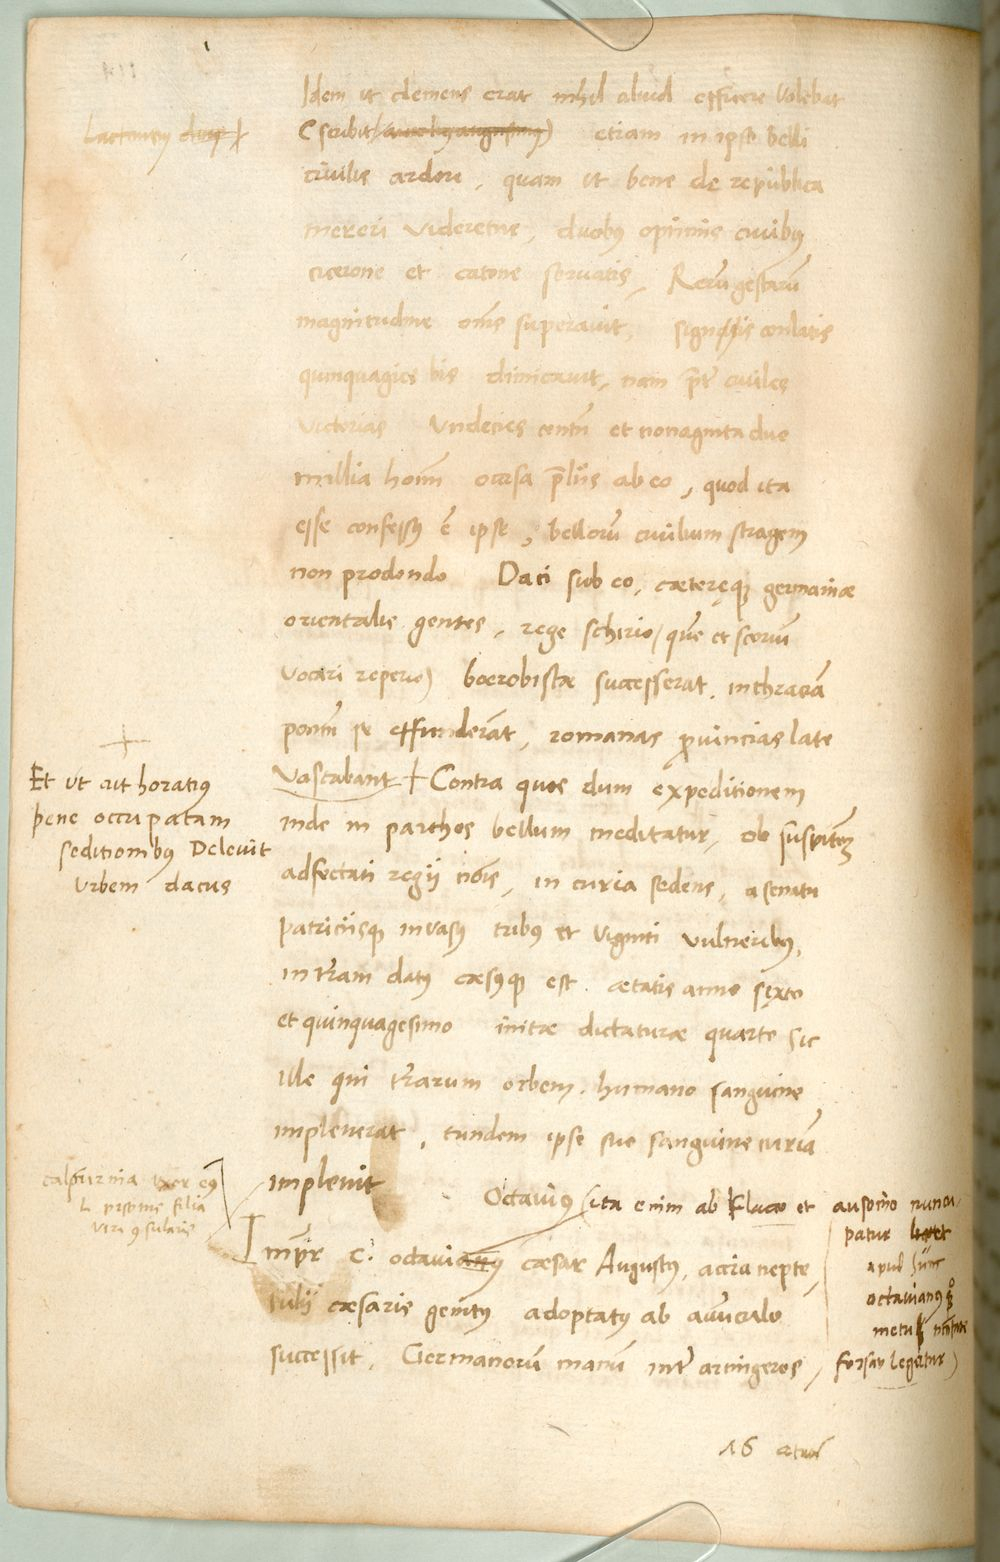 Idem ut clemens erat nihil aliud efficere volebat
Lactantius
(scribit) etiam in ipso belli
civilis ardore, quam ut bene de republica
mereri videretur, duobus optimis civibus
cicerone et catone servatis, Rerum gestarum
magnitudine omnes superavit, signis conlatis
quinquagies bis dimicavit, nam praeter civiles
victorias Undecies centum et nonaginta duo
millia hominum occisa proeliis ab eo, quod ita
esse confessus est ipse, bellorum civilium stragem
non prodendo Daci sub eo, cæteręque germaniæ
orientalis gentes, rege schirio (quem et scorium
vocari reperio) boerobistæ successerat, in thraciam
pontum se effunderant, romanas provincias late
Vastabant + Contra quos dum expeditionem
+
Et ut ait horatius
pene occupatam
seditionibus Delevit
Urbem dacus
inde in parthos bellum meditatur, ob suspitionem
adfectati regii nominis, in curia sedens, a senatu
patriciisque invasus tribus et viginti vulneribus,
in terram datus cæsusque est. ætatis anno sexto
et quinquagesimo initæ dictaturæ quarto sic
ille qui terrarum orbem, humano sanguine
impleverat, tandem ipse suo sanguine curiam
implevit
calpurnia uxor eius
L. pisonis filia
viri consularis
Octavius (ita enim ab Flacco et ausonio nuncu-
patur
apud hunc
octavianus
metu
forsan legetur)
Imperator C. octavianus cæsar Augustus, accia nepte
iulii cæsaris genitus adoptatus ab avunculo
successit, Germanorum manum inter armigeros,
16